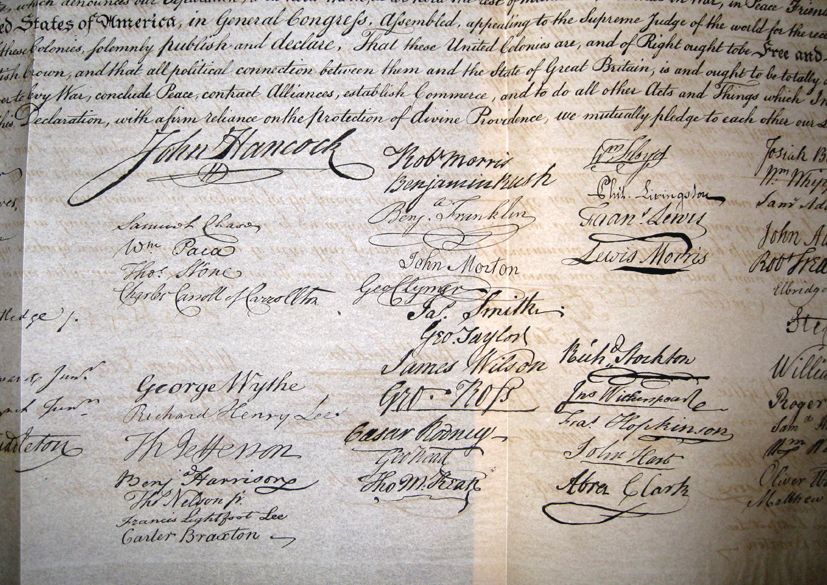 which denounces our Separation,
in War, in Peace Friends
ed States of America, in General Congress, Assembled, appealing to the Supreme Judge of the world for the rec
these Colonies, solemnly publish and declare, That these United Colonies are, and of Right ought to be Free and
tish Crown, and that all political connection between them and the State of Great Britain, is and ought to be totally
er to levy War, conclude Peace, contract Alliances, establish Commerce, and to do all other Acts and Things which In
this Declaration, with a firm reliance on the protection of divine Providence, we mutually pledge to each other our
John Hancock
Samuel Chase
Wm. Paca
Thos. Stone
Charles Carroll of Carrollton
George Wythe
Richard Henry Lee
Th Jefferson
Benj. Harrison
Thos. Nelson jr.
Francis Lightfoot Lee
Carter Braxton
Robt Morris
Benjamin Rush
Benj. Franklin
John Morton
Geo Clymer
Jas. Smith
Geo. Taylor
James Wilson
Geo. Ross
Caesar Rodney
Geo Read
Tho M:Kean
Wm Floyd
Phil. Livingston
Frans. Lewis
Lewis Morris
Richd. Stockton
Jno Witherspoon
Fras. Hopkinson
John Hart
Abra Clark
Josiah B
Wm Whip
Saml Ad
John Ad
Robt Trea
Elbridge
Step
William
Roger
Saml
Wm W
Oliver
Matthew